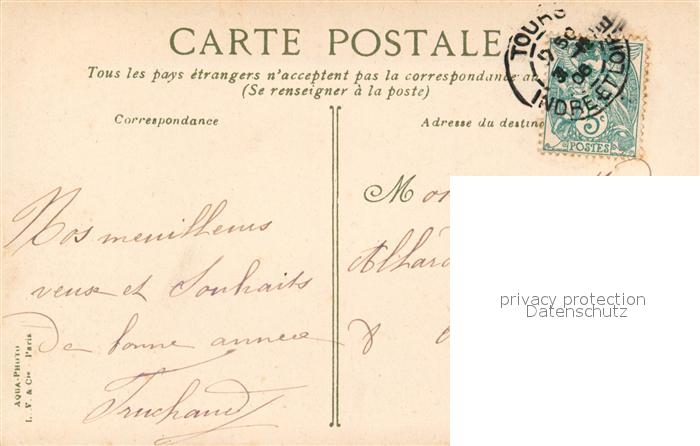 CARTE POSTALE
Tous les pays étrangers n'acceptent pas la correspondance au
(Se renseigner à la poste)
TOURS
INDRE ET LOIRE
5c
POSTES
Correspondance
Nos meuilleurs
veux et Souhaits
de bonne année
Truchaud
Adresse du destin
Mon
Allard
&
privacy protection
Datenschutz
AQUA-PHOTO
L. V. & Cie - Paris